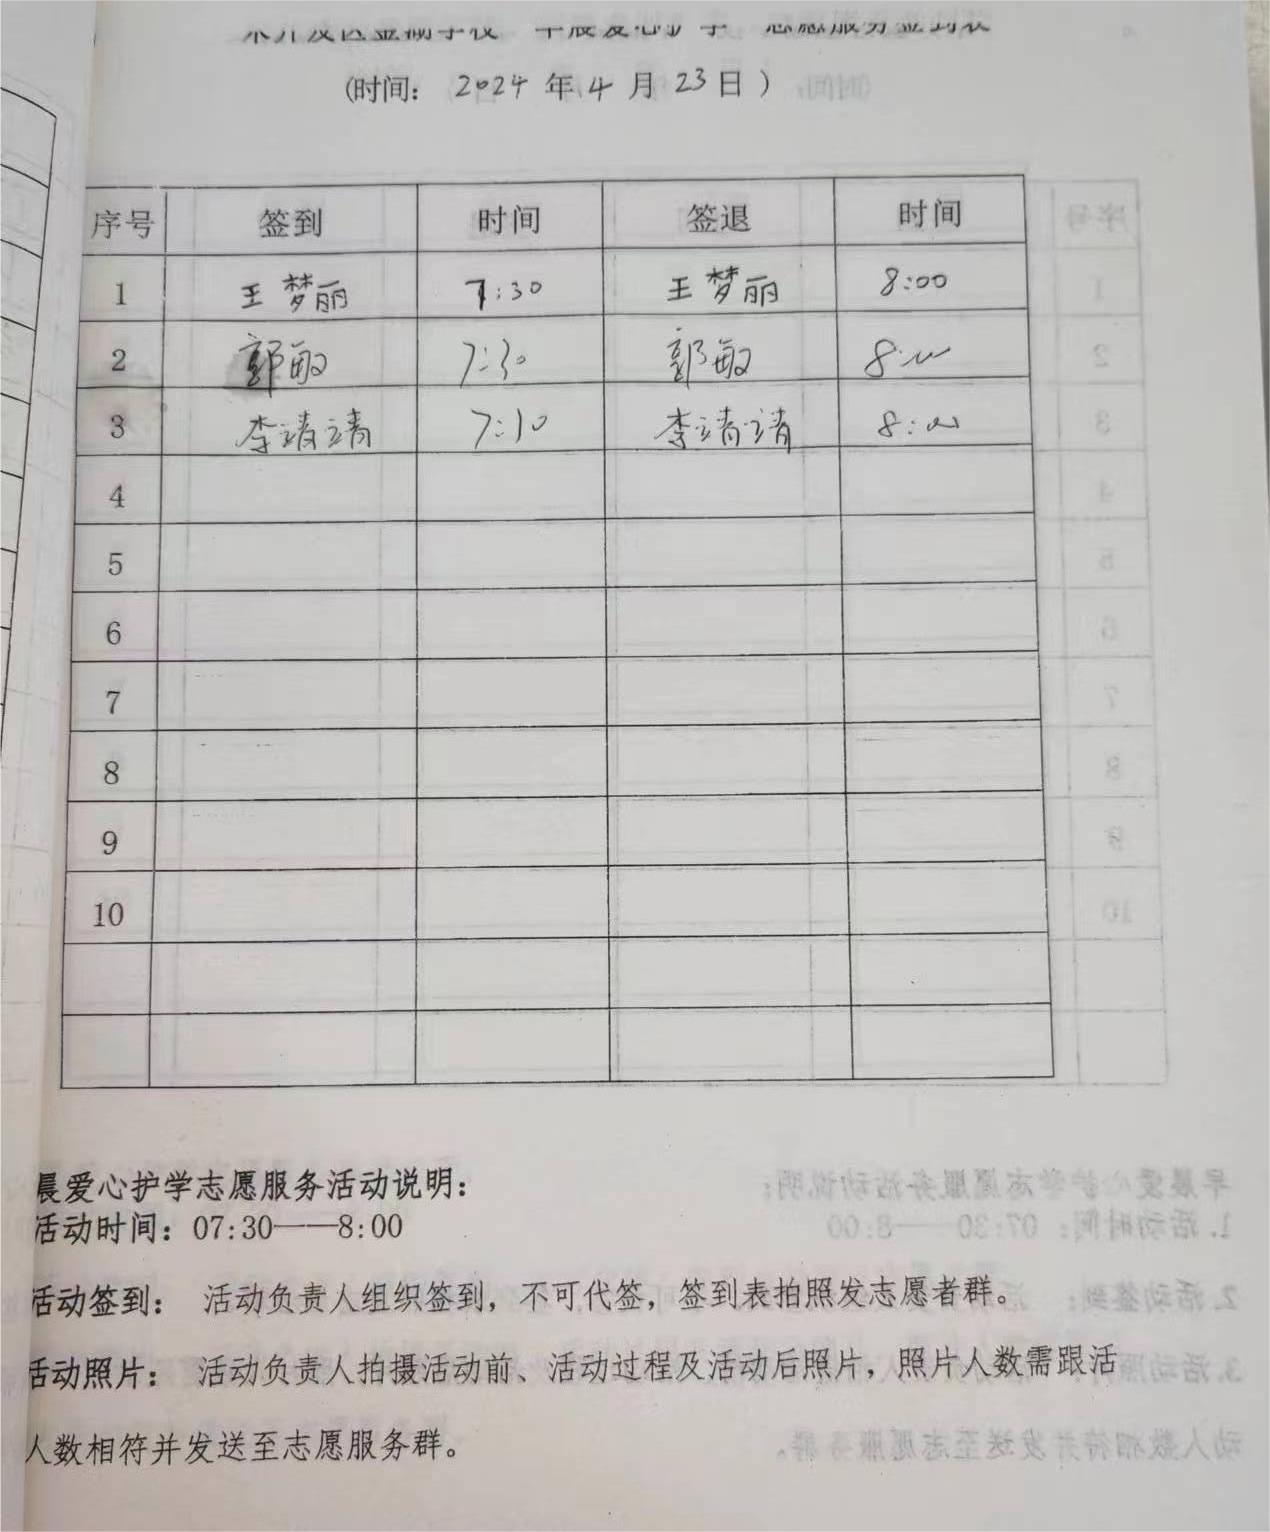 开发区金湖学校 早晨爱心护学 志愿服务签到表
(时间: 2024年4月23日)
序号 签到 时间 签退 时间
1 王梦丽 7:30 王梦丽 8:00
2 郭敏 7:30 郭敏 8:00
3 李靖靖 7:30 李靖靖 8:00
4
5
6
7
8
9
10
晨爱心护学志愿服务活动说明:
活动时间: 07:30——8:00
活动签到: 活动负责人组织签到, 不可代签, 签到表拍照发志愿者群。
活动照片: 活动负责人拍摄活动前、活动过程及活动后照片, 照片人数需跟活
人数相符并发送至志愿服务群。